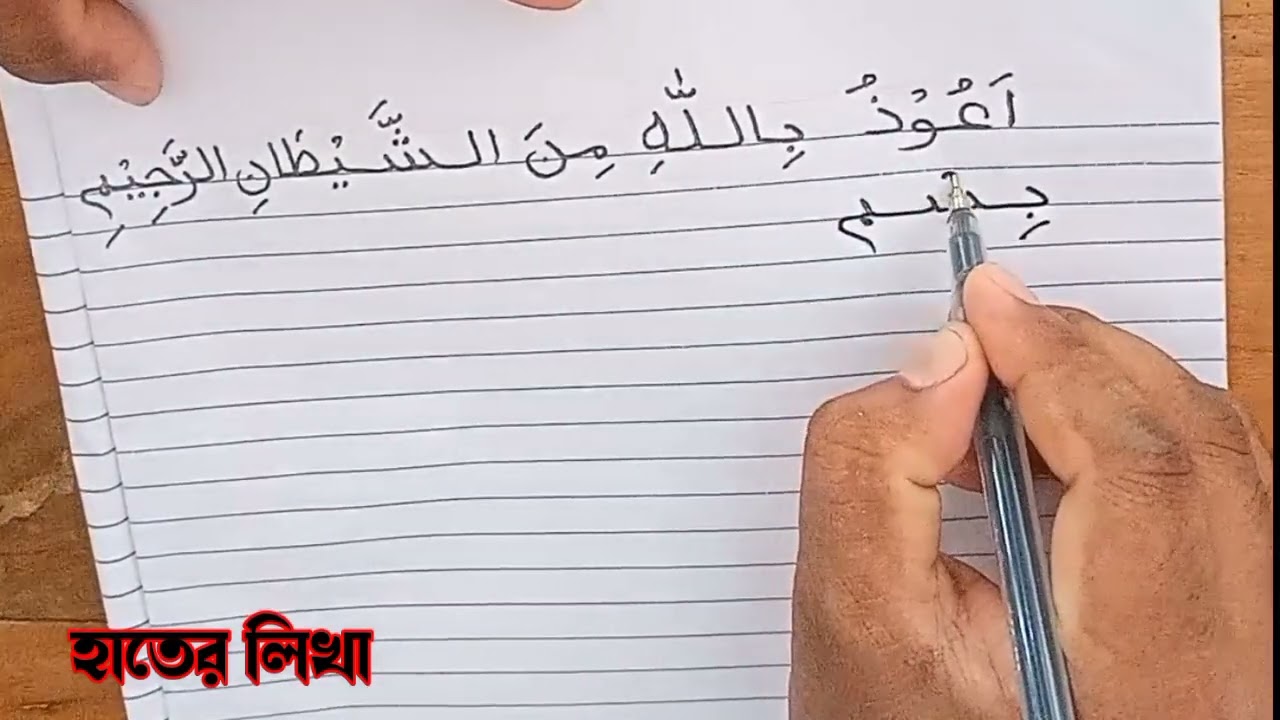 اَعُوْذُ بِاللّٰهِ مِنَ الشَّيْطَانِ الرَّجِيْمِ
بِسْم
হাতের লিখা